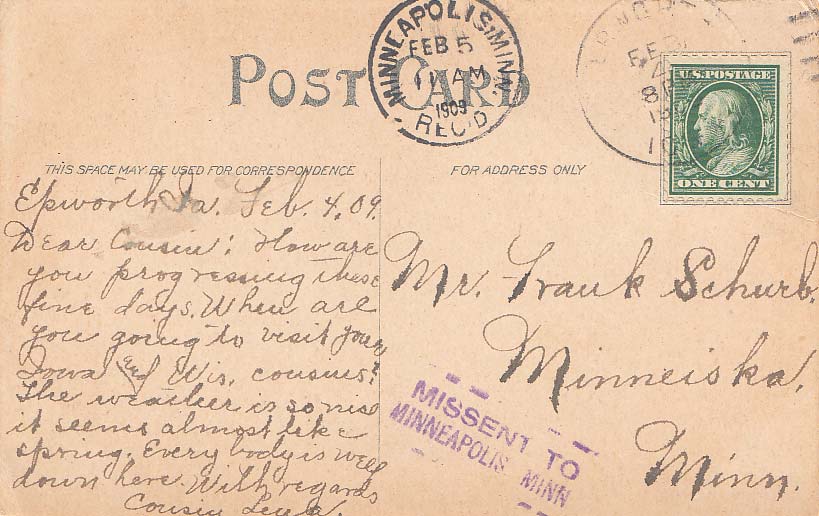 POST CARD
MINNEAPOLIS, MINN.
FEB 5
11 AM
1909
REC'D
U.S. POSTAGE
ONE CENT
THIS SPACE MAY BE USED FOR CORRESPONDENCE
FOR ADDRESS ONLY
Epworth, Ia. Feb. 4, 09.
Dear Cousin: How are
you progressing these
fine days. When are
you going to visit your
Iowa and Wis. cousins?
The weather is so nise
it seems almost like
spring. Every body is well
down here. With regards
Cousin
Mr. Frank Schurb.
Minneiska,
Minn.
MISSENT TO
MINNEAPOLIS MINN